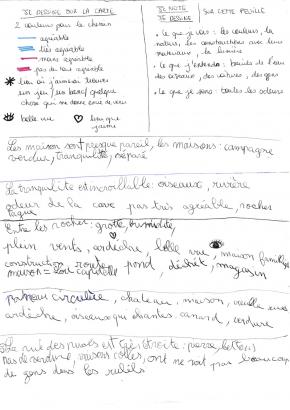 JE DESSINE SUR LA CARTE
2 couleurs pour le chemin
agréable
très agréable
moins agréable
pas du tout agréable
lieu où j'aimerai trouver
un jeu / un banc / quelque
chose qui me donne envie de venir
belle vue
lieu que
j'aime
JE NOTE
JE DESSINE
SUR CETTE FEUILLE
ce que je vois : les couleurs, la
nature, les constructions avec leurs
matériaux, la lumière
ce que j'entends : bruits de l'eau
des oiseaux, des voitures, des gens
ce que je sens : toutes les odeurs
Les maisons sont presque pareil, les maisons : campagne
verdure, tranquilité, séparé
La tranquilité est incroillable : oiseaux, rivière
odeur de la cave pas très agréable, rochers
Entre les rocher : grotte, humidité,
plein vents, ardèche, belle vue, maison famille
construction rouge, pond, désert, magasin
maison =
panneau circulée, chateau, maison, vieille
ardèche, oiseaux qui chantes, canard, verdure
La rue des puols est très étroite :
Pas de verdure, maisons collés, ont ne voit pas beaucoup
de gens dans les